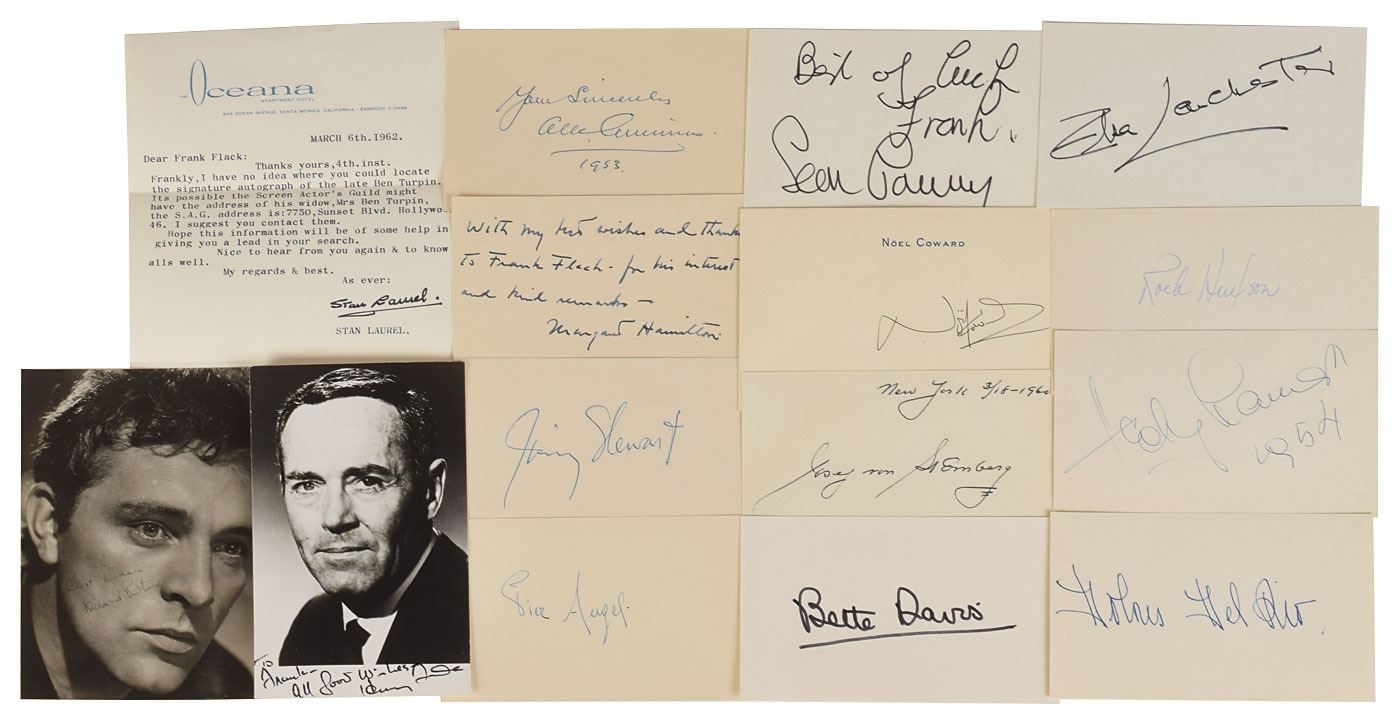 THE Oceana
APARTMENT HOTEL
849 OCEAN AVENUE, SANTA MONICA, CALIFORNIA · EXBROOK 3-0486
MARCH 6th.1962.
Dear Frank Flack:
Thanks yours,4th.inst.
Frankly,I have no idea where you could locate
the signature autograph of the late Ben Turpin.
Its possible the Screen Actor's Guild might
have the address of his widow,Mrs Ben Turpin,
the S.A.G. address is:7750,Sunset Blvd. Hollywo
46. I suggest you contact them.
Hope this information will be of some help in
giving you a lead in your search.
Nice to hear from you again & to know
alls well.
My regards & best.
As ever:
Stan Laurel.
STAN LAUREL.
Yours Sincerely
1953.
Best of luck
Frank.
Sean Connery
Elsa Lanchester
With my best wishes and thanks
to Frank Flack - for his interest
and kind remarks -
Margaret Hamilton
NOËL COWARD
Noël Coward
Rock Hudson
Jimmy Stewart
New York 3/18-1960
Josef von Sternberg
1954
Pier Angeli
Bette Davis
Dolores Del Rio.
Richard Burton
To
Frank-
All Good Wishes
Henry